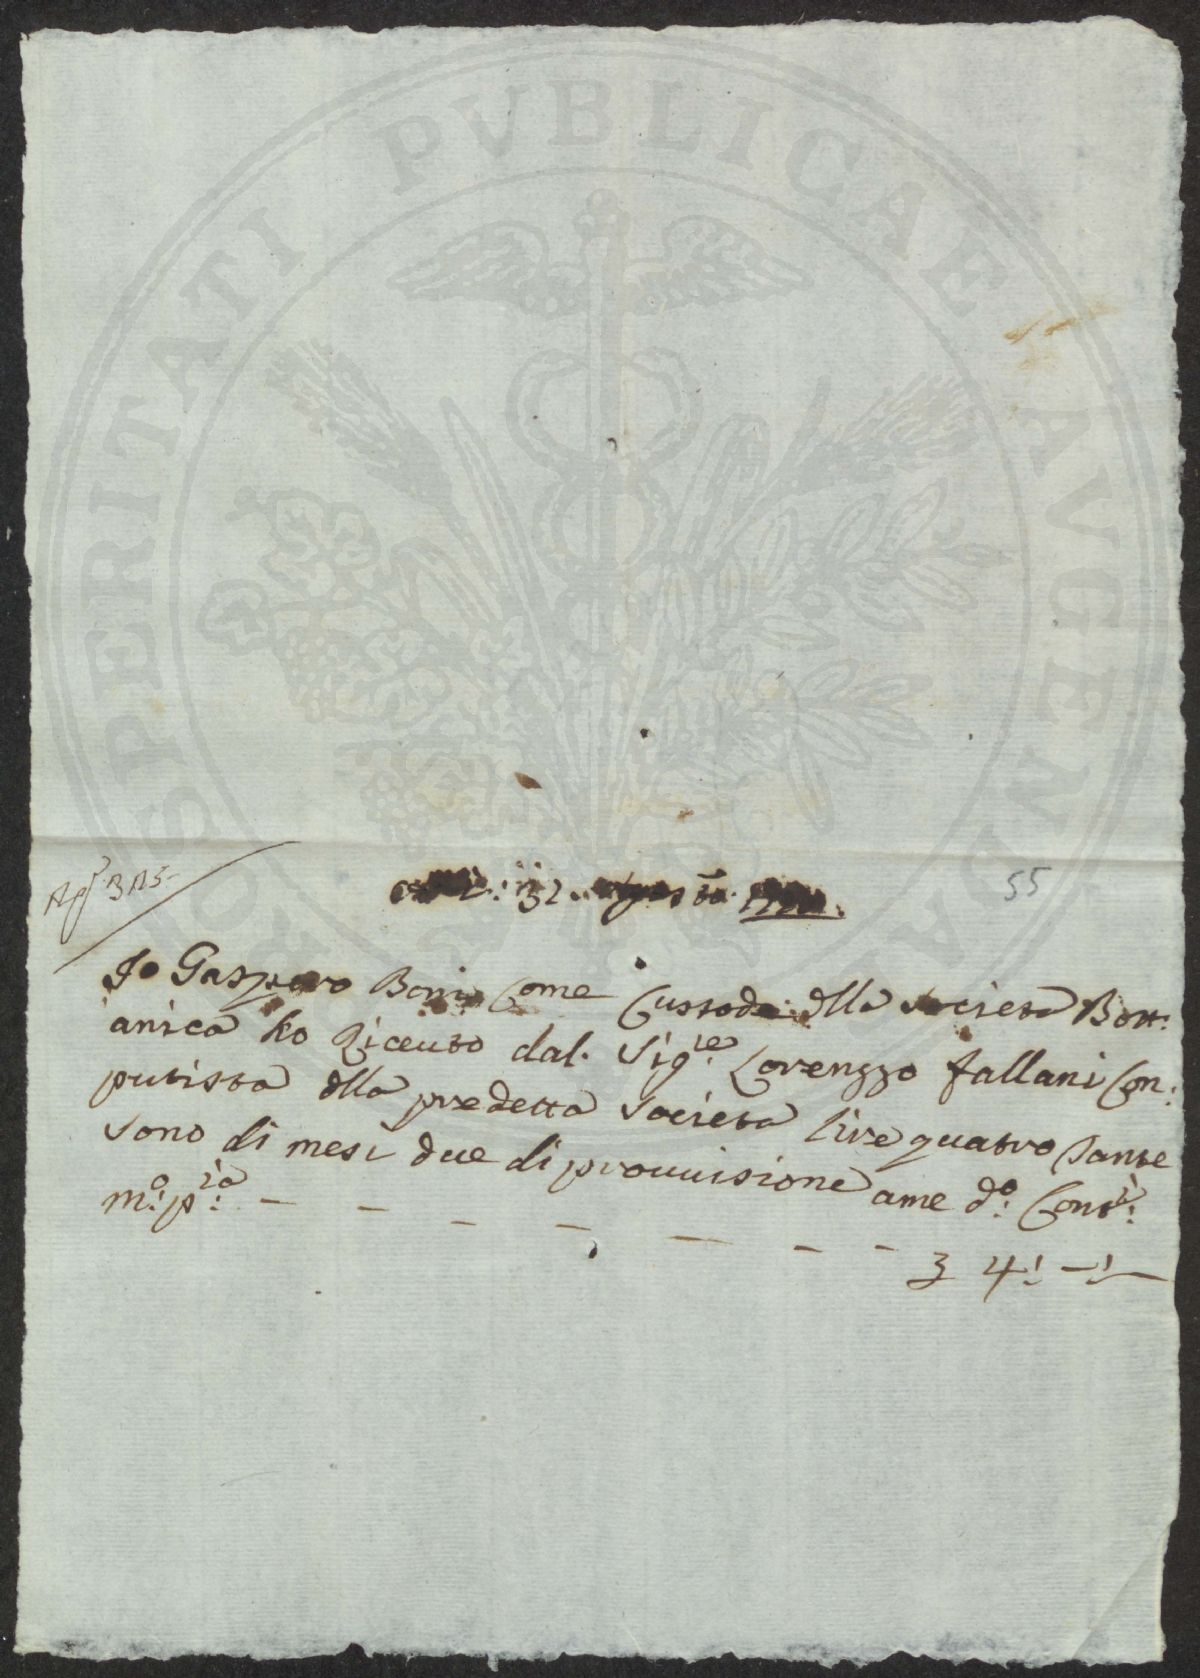 PROSPERITATI PVBLICAE AVGENDAE
55
31 Agosto
Io Gasparo Boni Come Custode dlla Societa Bott:
anica ho Riceuto dal. Sigre: Lorenzzo fallani Con:
putista dlla predetta Societa lire quatro Sante
Sono di mesi due di prouisione ame do: Contti:
mo: pia: – – – – – – –
4: